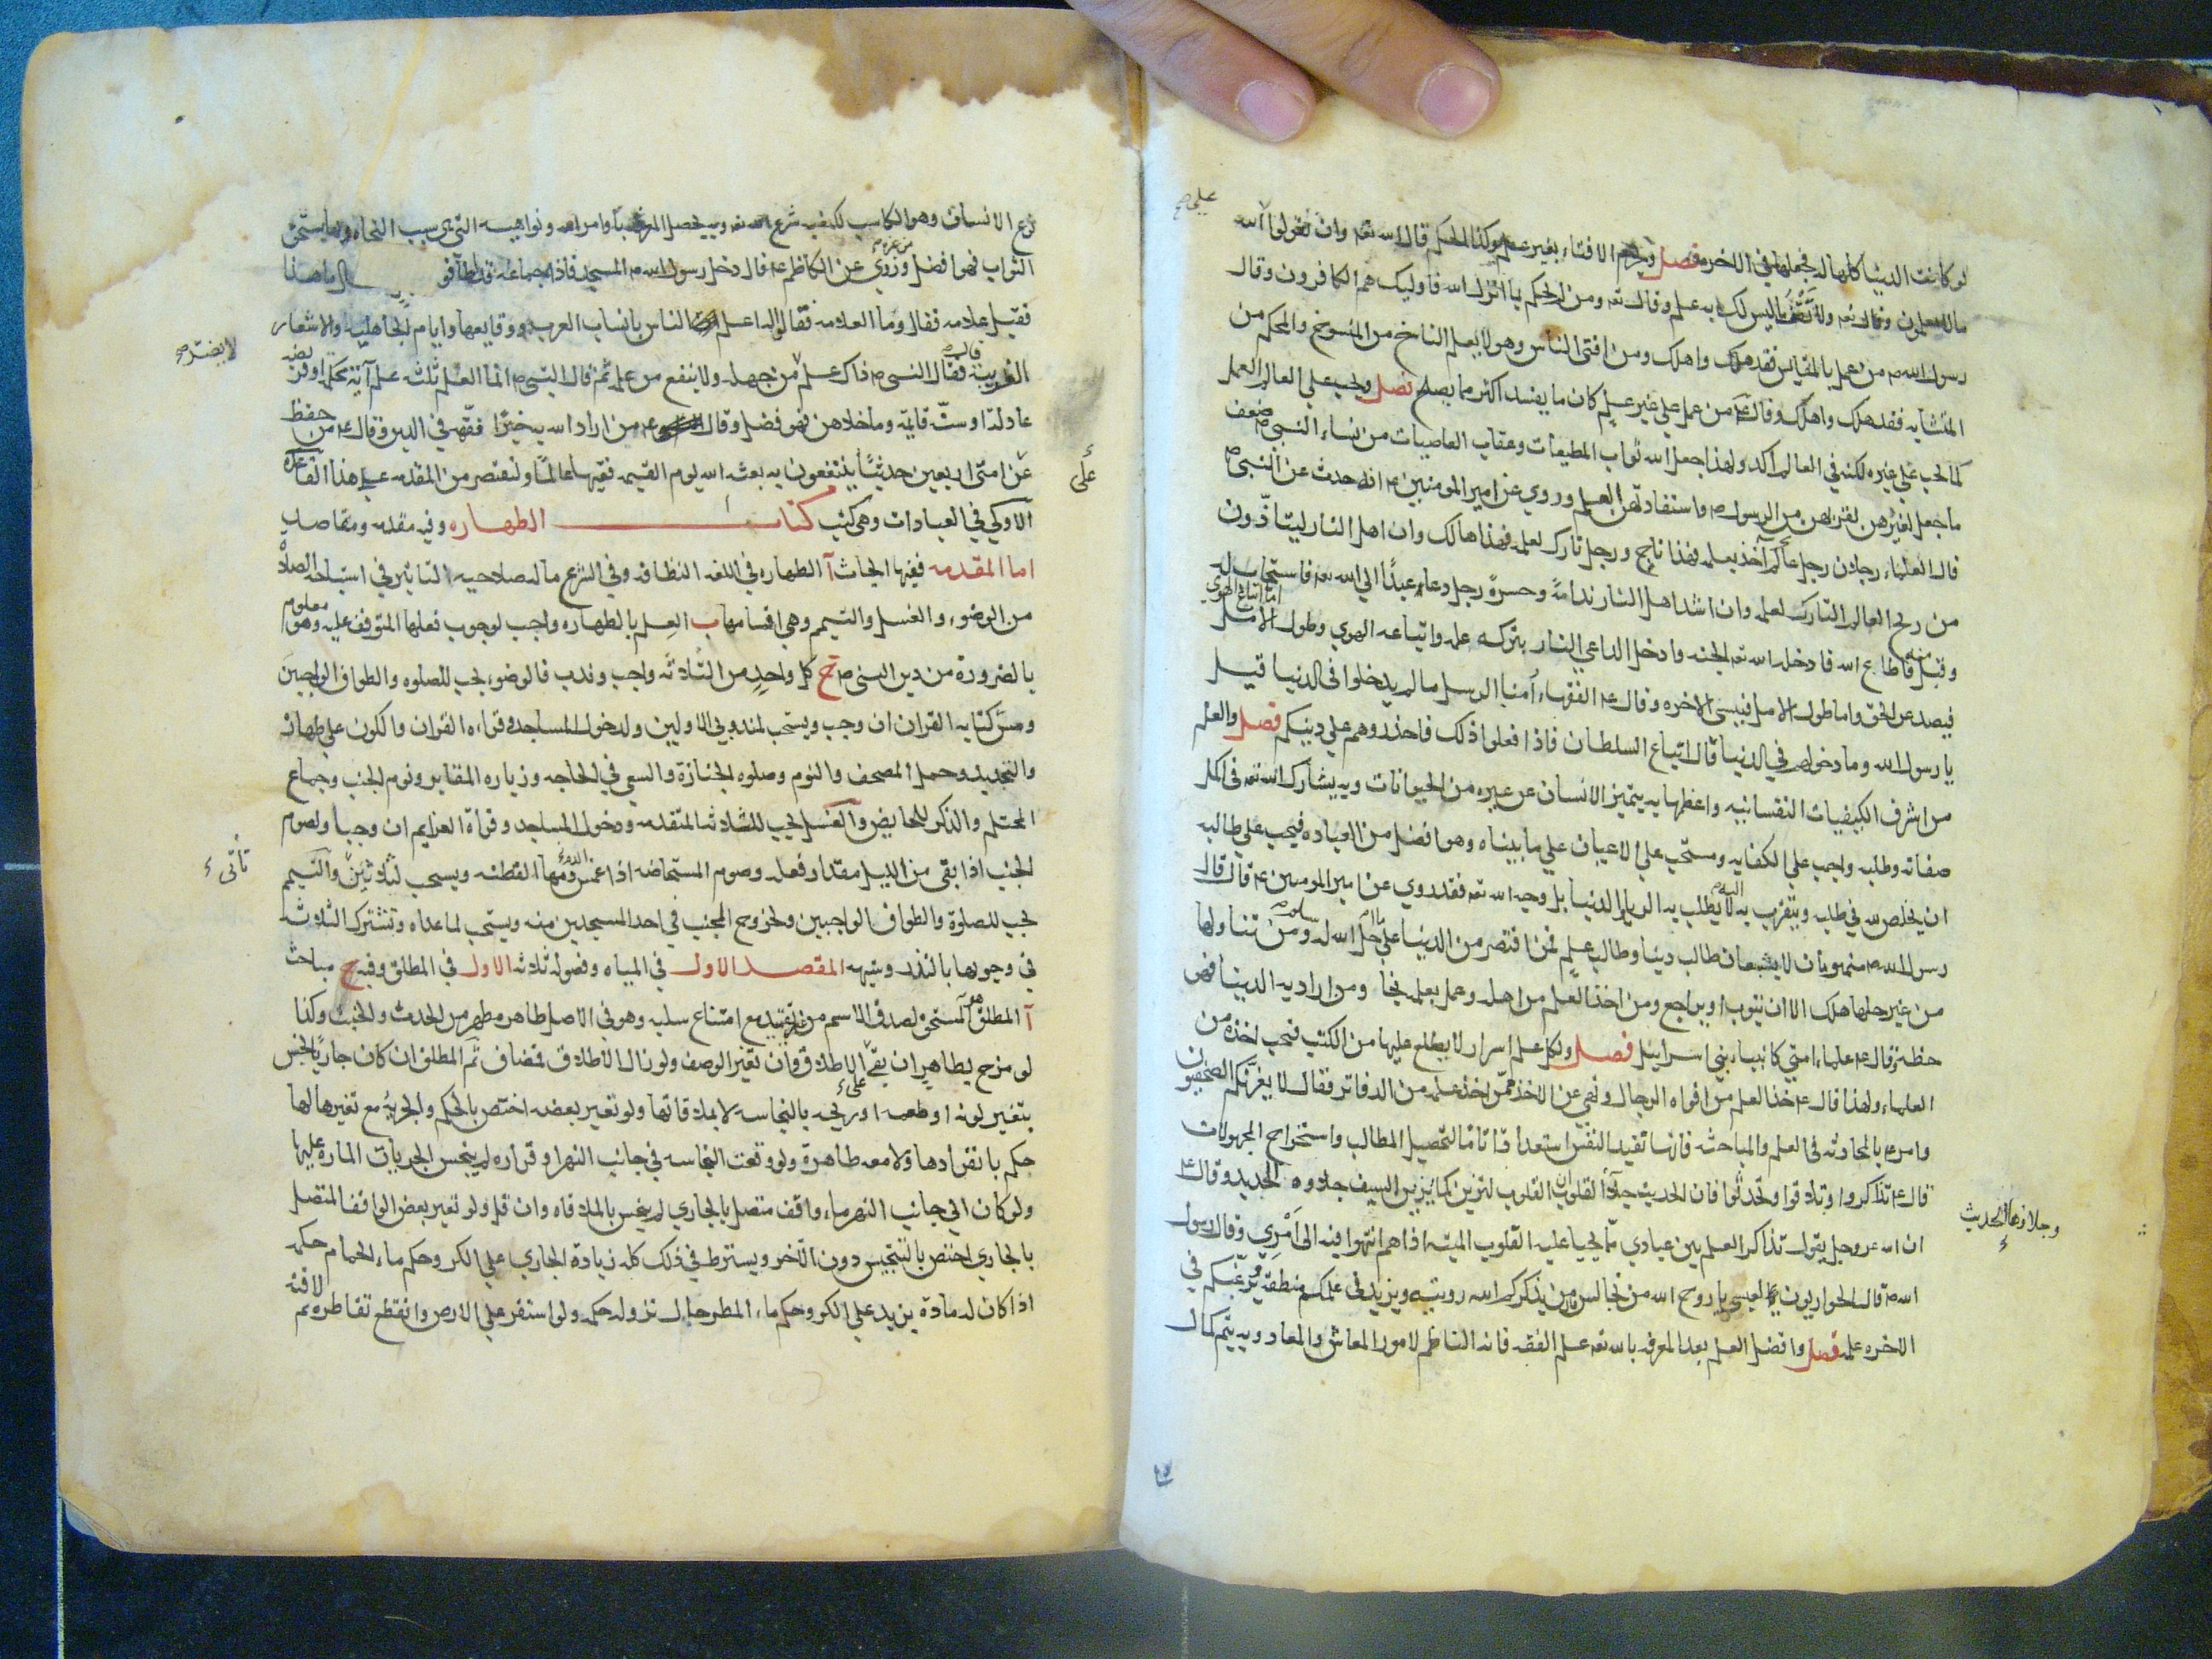 لو كانت الدنيا كلها له فجعلها في الاخره فصل ويحرم الافتاء بغير علم وكذا الحكم قال الله تعه وان تقولوا علي الله
ما لا تعلمون وقال تعه ولا تقف ما ليس لك به علم وقال تعه ومن لم يحكم بما انزل الله فاوليك هم الكافرون وقال
رسول الله ص من عمل بالمقاييس فقد هلك واهلك ومن افتي الناس وهو لا يعلم الناسخ من المنسوخ والمحكم من
المتشابه فقد هلك واهلك وقال ع من عمل علي غير علم كان ما يفسد اكثر مما يصلح فصل ويجب علي العالم العمل
كما يجب علي غيره لكنه في العالم آكد ولهذا جعل الله ثواب المطيعات وعقاب العاصيات من نساء النبي ص ضعف
ما جعل لغيرهن لقربهن من الرسول ص واستفادتهن العلم وروي عن امير المومنين ع انه حدث عن النبي ص
قال العلماء رجلان رجل عالم آخذ بعلمه فهذا ناج ورجل تارك لعلمه فهذا هالك وان اهل النار ليتاذون
من ريح العالم التارك لعلمه وان اشد اهل النار ندامة وحسرة رجل دعا عبدا الي الله تعه فاستجاب له
وقبل منه فاطاع الله فادخله الله تعه الجنه وادخل الداعي النار بتركه علمه واتباعه الهوي وطول الامل اما اتباع الهوي
فيصد عن الحق واما طول الامل فينسي الاخره وقال ع الفقهاء أمنا الرسل ما لم يدخلوا في الدنيا قيل
يا رسول الله وما دخولهم في الدنيا قال اتباع السلطان فاذا فعلوا ذلك فاحذروهم علي دينكم فصل والعلم
من اشرف الكيفيات النفسانيه واعظمها به يتميز الانسان عن غيره من الحيوانات وبه يشارك الله تعه في اكمل
صفاته وطلبه واجب علي الكفايه ومستحب علي الاعيان علي ما بيناه وهو افضل من العباده فيجب علي طالبه
ان يخلص لله في طلبه ويتقرب به اليه لا يطلب به الريا والدنيا بل وجه الله تعه فقد روي عن امير المومنين ع قال قال
رسول الله ص منهومان لا يشبعان طالب دنيا وطالب علم فمن اقتصر من الدنيا علي ما احل الله له سلم ومن تناولها
من غير حلها هلك الا ان يتوب او يراجع ومن اخذ العلم من اهله وعمل بعلمه نجا ومن اراد به الدنيا فهي
حظه وقال ع علماء امتي كانبياء بني اسراييل فصل ولكل علم اسرار لا يطلع عليها من الكتب فيجب اخذه من
العلماء ولهذا قال ع خذ العلم من افواه الرجال ونهي عن الاخذ ممن اخذ علمه من الدفاتر فقال لا يغرنكم الصحفيون
وامر ع بالمحادثه في العلم والمباحثه فانها تفيد النفس استعدادا تاما لتحصيل المطالب واستخراج المجهولات
قال ع تذاكروا وتلاقوا وتحدثوا فان الحديث جلاء القلوب ان القلوب لترين كما يرين السيف جلاوه الحديد وقال ع
وجلاوها الحديث
ان الله عز وجل يقول تذاكر العلم بين عبادي مما يحيا عليه القلوب الميته اذا هم انتهوا فيه الي امري وقال رسول
الله ص قال الحواريون لعيسي يا روح الله من نجالس قال من يذكركم الله رويته ويزيد في علمكم منطقه ويرغبكم في
الاخره عمله فصل وافضل العلم بعد المعرفه بالله تعه علم الفقه فانه الناظم لامور المعاش والمعاد وبه يتم كمال
نوع الانسان وهو الكاسب لكيفيه شرع الله تعه وبه يحصل المعرفه باوامر الله ونواهيه التي هي سبب النجاه وبها يستحق
الثواب فهو افضل من غيره وروي عن الكاظم ع قال دخل رسول الله ص المسجد فاذا جماعه قد اطافو برجل فقال ما هذا
فقيل علامه فقال وما العلامه فقالوا اعلم الناس بانساب العرب ووقايعها وايام الجاهليه والاشعار
العربيه قال فقال النبي ص ذاك علم لا يضر من جهله ولا ينفع من علمه ثم قال النبي ص انما العلم ثلثه علم آية محكمة او فريضه
عادلة او سنة قايمة وما خلاهن فهو فضل وقال ع من اراد الله به خيرا فقهه في الدين وقال ع من حفظ
علي امتي اربعين حديثا ينتفعون به بعثه الله يوم القيمه فقيها عالما ولنقتصر من المقدمه علي هذا القاعده
الاولي في العبادات وهي كتب كتاب الطهاره وفيه مقدمه ومقاصد
اما المقدمه ففيها ابحاث آ الطهاره في اللغه النظافه وفي الشرع ما له صلاحيه التاثير في استباحه الصلاه
من الوضوء والغسل والتيمم وهي اقسامها ب العلم بالطهاره واجب لوجوب فعلها المتوقف عليه وهو معلوم
بالضرورة من دين النبي ص ج كل واحد من الثلاثه واجب وندب فالوضوء يجب للصلوه والطواف الواجبين
ومس كتابه القران ان وجب ويستحب لمندوبي الاولين ولدخول المساجد وقراءه القران والكون علي طهاره
والتجديد وحمل المصحف والنوم وصلوه الجنازة والسعي في الحاجه وزياره المقابر ونوم الجنب وجماع
المحتلم والذكر للحايض والغسل يجب للثلاثه المتقدمه ودخول المساجد وقراة العزايم ان وجبا ولصوم
الجنب اذا بقي من الليل مقدار فعله وصوم المستحاضه اذا غمس دمها القطنه ويستحب لثلاثين والتيمم
يجب للصلوة والطواف الواجبين ولخروج المجنب في احد المسجدين منه ويستحب لما عداه وتشترك الثلاثه
في وجوبها بالنذر وشبهه المقصد الاول في المياه وفصوله ثلاثه الاول في المطلق وفيه ج مباحث
آ المطلق هو المستحق لصدق الاسم من غير تقييد مع امتناع سلبه وهو في الاصل طاهر مطهر من الحدث والخبث وكذا
لو مزج بطاهر ان بقي الاطلاق وان تغير الوصف ولو زال الاطلاق فمضاف ثم المطلق ان كان جاريا لم ينجس
بتغير لونه او طعمه او ريحه بالنجاسه لا بملاقاتها ولو تغير بعضه اختص بالحكم والجرية مع تغيرها لها
حكم بانفرادها ولامعه طاهرة ولو وقعت النجاسه في جانب النهر او قراره لم ينجس الجريات المارة عليها
ولو كان الي جانب النهر ماء واقف متصل بالجاري لم ينجس بالملاقاه وان قل ولو تغير بعض الواقف المتصل
بالجاري اختص بالتنجيس دون الآخر ويشترط في ذلك كله زيادة الجاري علي الكر وحكم ماء الحمام حكمه
اذا كان له مادة يزيد علي الكر وحكم ماء المطر حال نزوله حكمه ولو استقر علي الارض وانقطع تقاطره ثم لاقته